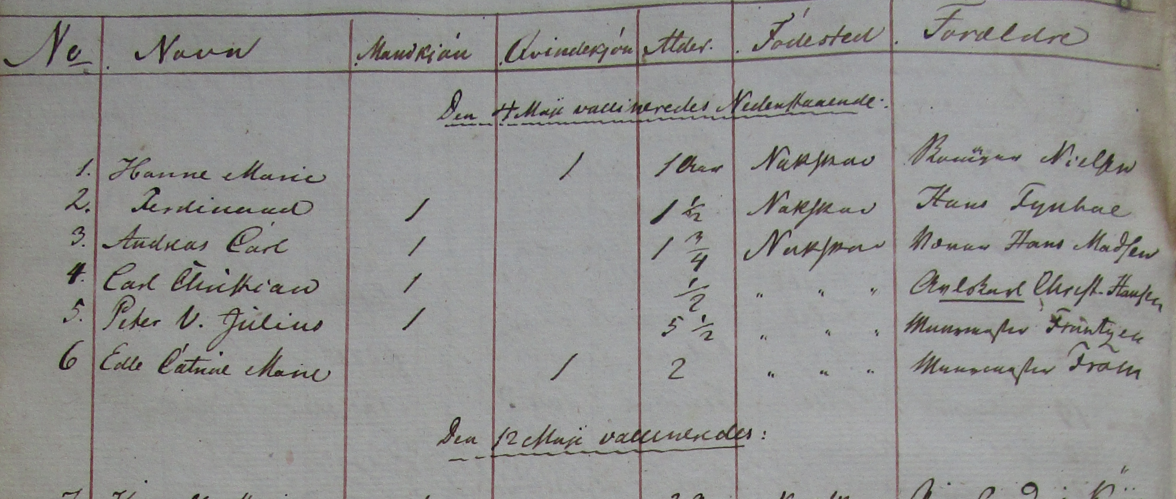 No Navn Mandkjön Qvindekjön Alder. Födested Forældre
Den 4 Maji vaccineredes Nedenstaaende:
1. Hanne Marie 1 1 Aar Nakskov Nielsen
2. Ferdinand 1 1 1/2 Nakskov Hans Fynboe
3. Andreas Carl 1 1 3/4 Nakskov Væver Hans Madsen
4. Carl Christian 1 1/2 " " " Avlskarl Christ. Hansen
5. Peter V. Julius 1 5 1/2 " " " Muurmester Fräntzen
6 Edle Catrine Marie 1 2 " " " Muurmester From
Den 12 Maji vaccineredes: